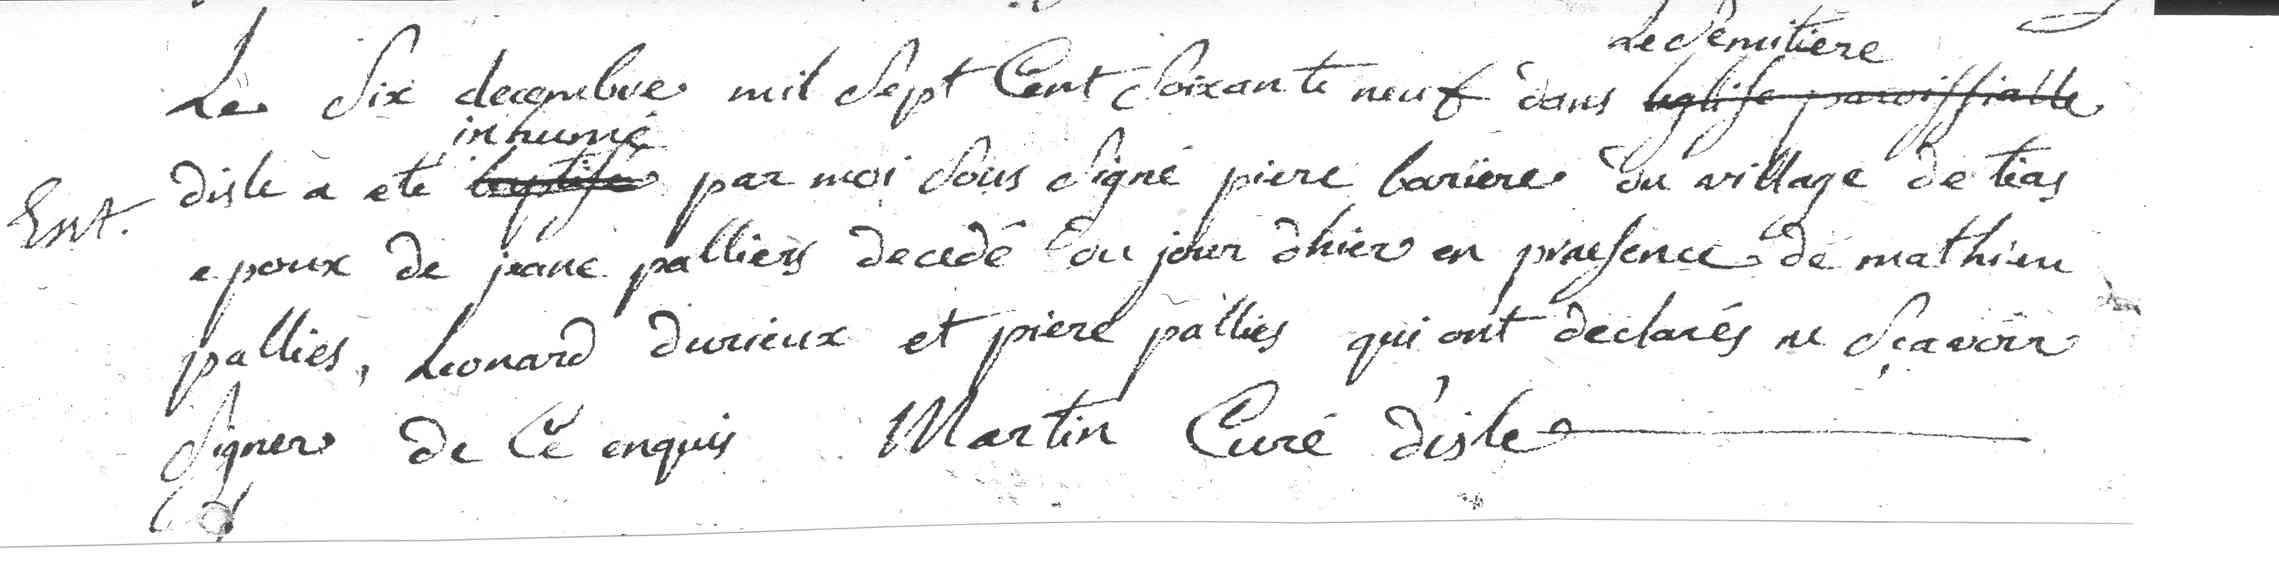 Le Semitiere
Le Six decembre mil Sept Cent Soixante neuf dans leglise paroissialle
inhumé
disle a eté baptisé par moi Sous Signé piere bariere du village de teas
Ent.
epoux de jeane palliers decedé du jour dhier en praesence de mathieu
pallies, Leonard durieux et piere pallies qui ont declarés ne Sçavoir
Signer de Ce enquis Martin Curé d'isle